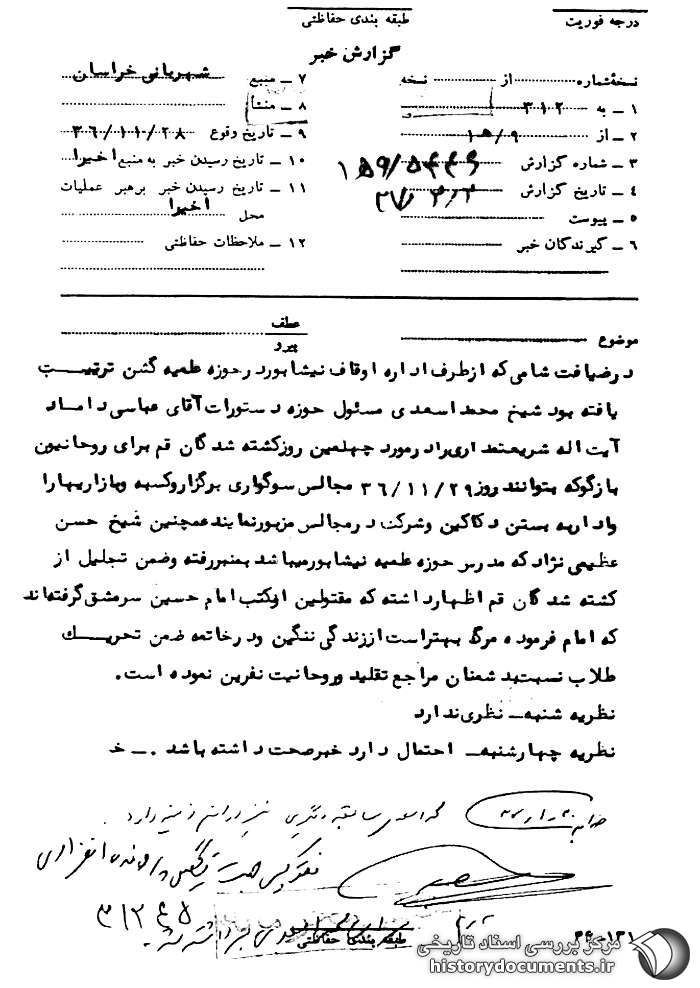 درجه فوریت
طبقه بندی حفاظتی
گزارش خبر
نسخهٔ شماره از نسخه
۱ ــ به ۳۱۲
۲ ــ از ۹/ه۱
۳ ــ شماره گزارش
۴ ــ تاریخ گزارش
۵ ــ پیوست
۶ ــ گیرندگان خبر
۷ ــ منبع شهربانی خراسان
۸ ــ منشأ
۹ ــ تاریخ وقوع ۳۶/۱۱/۲۸
۱۰ ــ تاریخ رسیدن خبر به منبع اخیرا
۱۱ ــ تاریخ رسیدن خبر برهبر عملیات
محل اخیرا
۱۲ ــ ملاحظات حفاظتی
موضوع
عطف
پیرو
درضیافت شامی که ازطرف اداره اوقاف نیشابورد رحوزه علمیه گشن ترتیب
یافته بود شیخ محمد اسعدی مسئول حوزه دستورات آقای عباسی داماد
آیت اله شریعتمداری رادرمورد چهلمین روزکشته شدگان قم برای روحانیون
بازگوکه بتوانند روز ۳۶/۱۱/۲۹ مجالس سوگواری برگزاروکسبه وبازاریهارا
وادار به بستن دکاکین وشرکت درمجالس مزبورنمایندهمچنین شیخ حسن
عظیمی نژاد که مدرس حوزه علمیه نیشابورمیباشد بمنبررفته وضمن تجلیل از
کشته شدگان قم اظهارداشته که مقتولین ازمکتب امام حسین سرمشق گرفته‌اند
که امام فرموده مرگ بهتراست اززندگی ننگین ودرخاتمه ضمن تحریک
طلاب نسبت بدشمنان مراجع تقلید وروحانیت نفرین نموده است.
نظریه شنبه ــ نظری ندارد
نظریه چهارشنبه ــ احتمال دارد خبرصحت داشته باشد . ــ خ
۳۱۲۶۵
طبقه بندی حفاظتی
۳۶-۱۳۱
مرکز بررسی اسناد تاریخی
historydocuments.ir